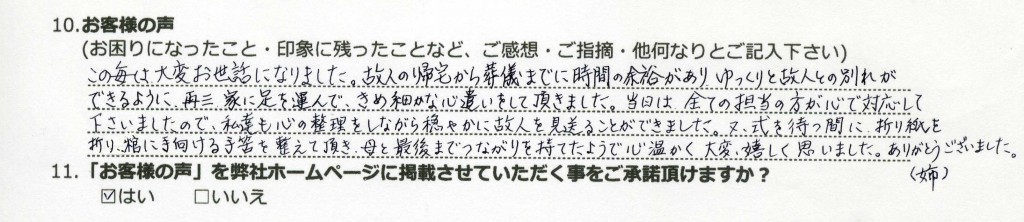 10.お客様の声
(お困りになったこと・印象に残ったことなど、ご感想・ご指摘・他何なりとご記入下さい)
この毎は、大変お世話になりました。故人の帰宅から葬儀までに時間の余裕があり、ゆっくりと故人との別れが
できるように、再三家に足を運んで、きめ細かな心遣いをして頂きました。当日は、全ての担当の方が心で対応して
下さいましたので、私達も心の整理をしながら穏やかに故人を見送ることができました。又、式を待つ間に、折り紙を
折り、棺に手向ける手筈を整えて頂き、母と最後までつながりを持てたようで心温かく大変、嬉しく思いました。ありがとうございました。
(姉)
11.「お客様の声」を弊社ホームページに掲載させていただく事をご承諾頂けますか？
☑はい　□いいえ